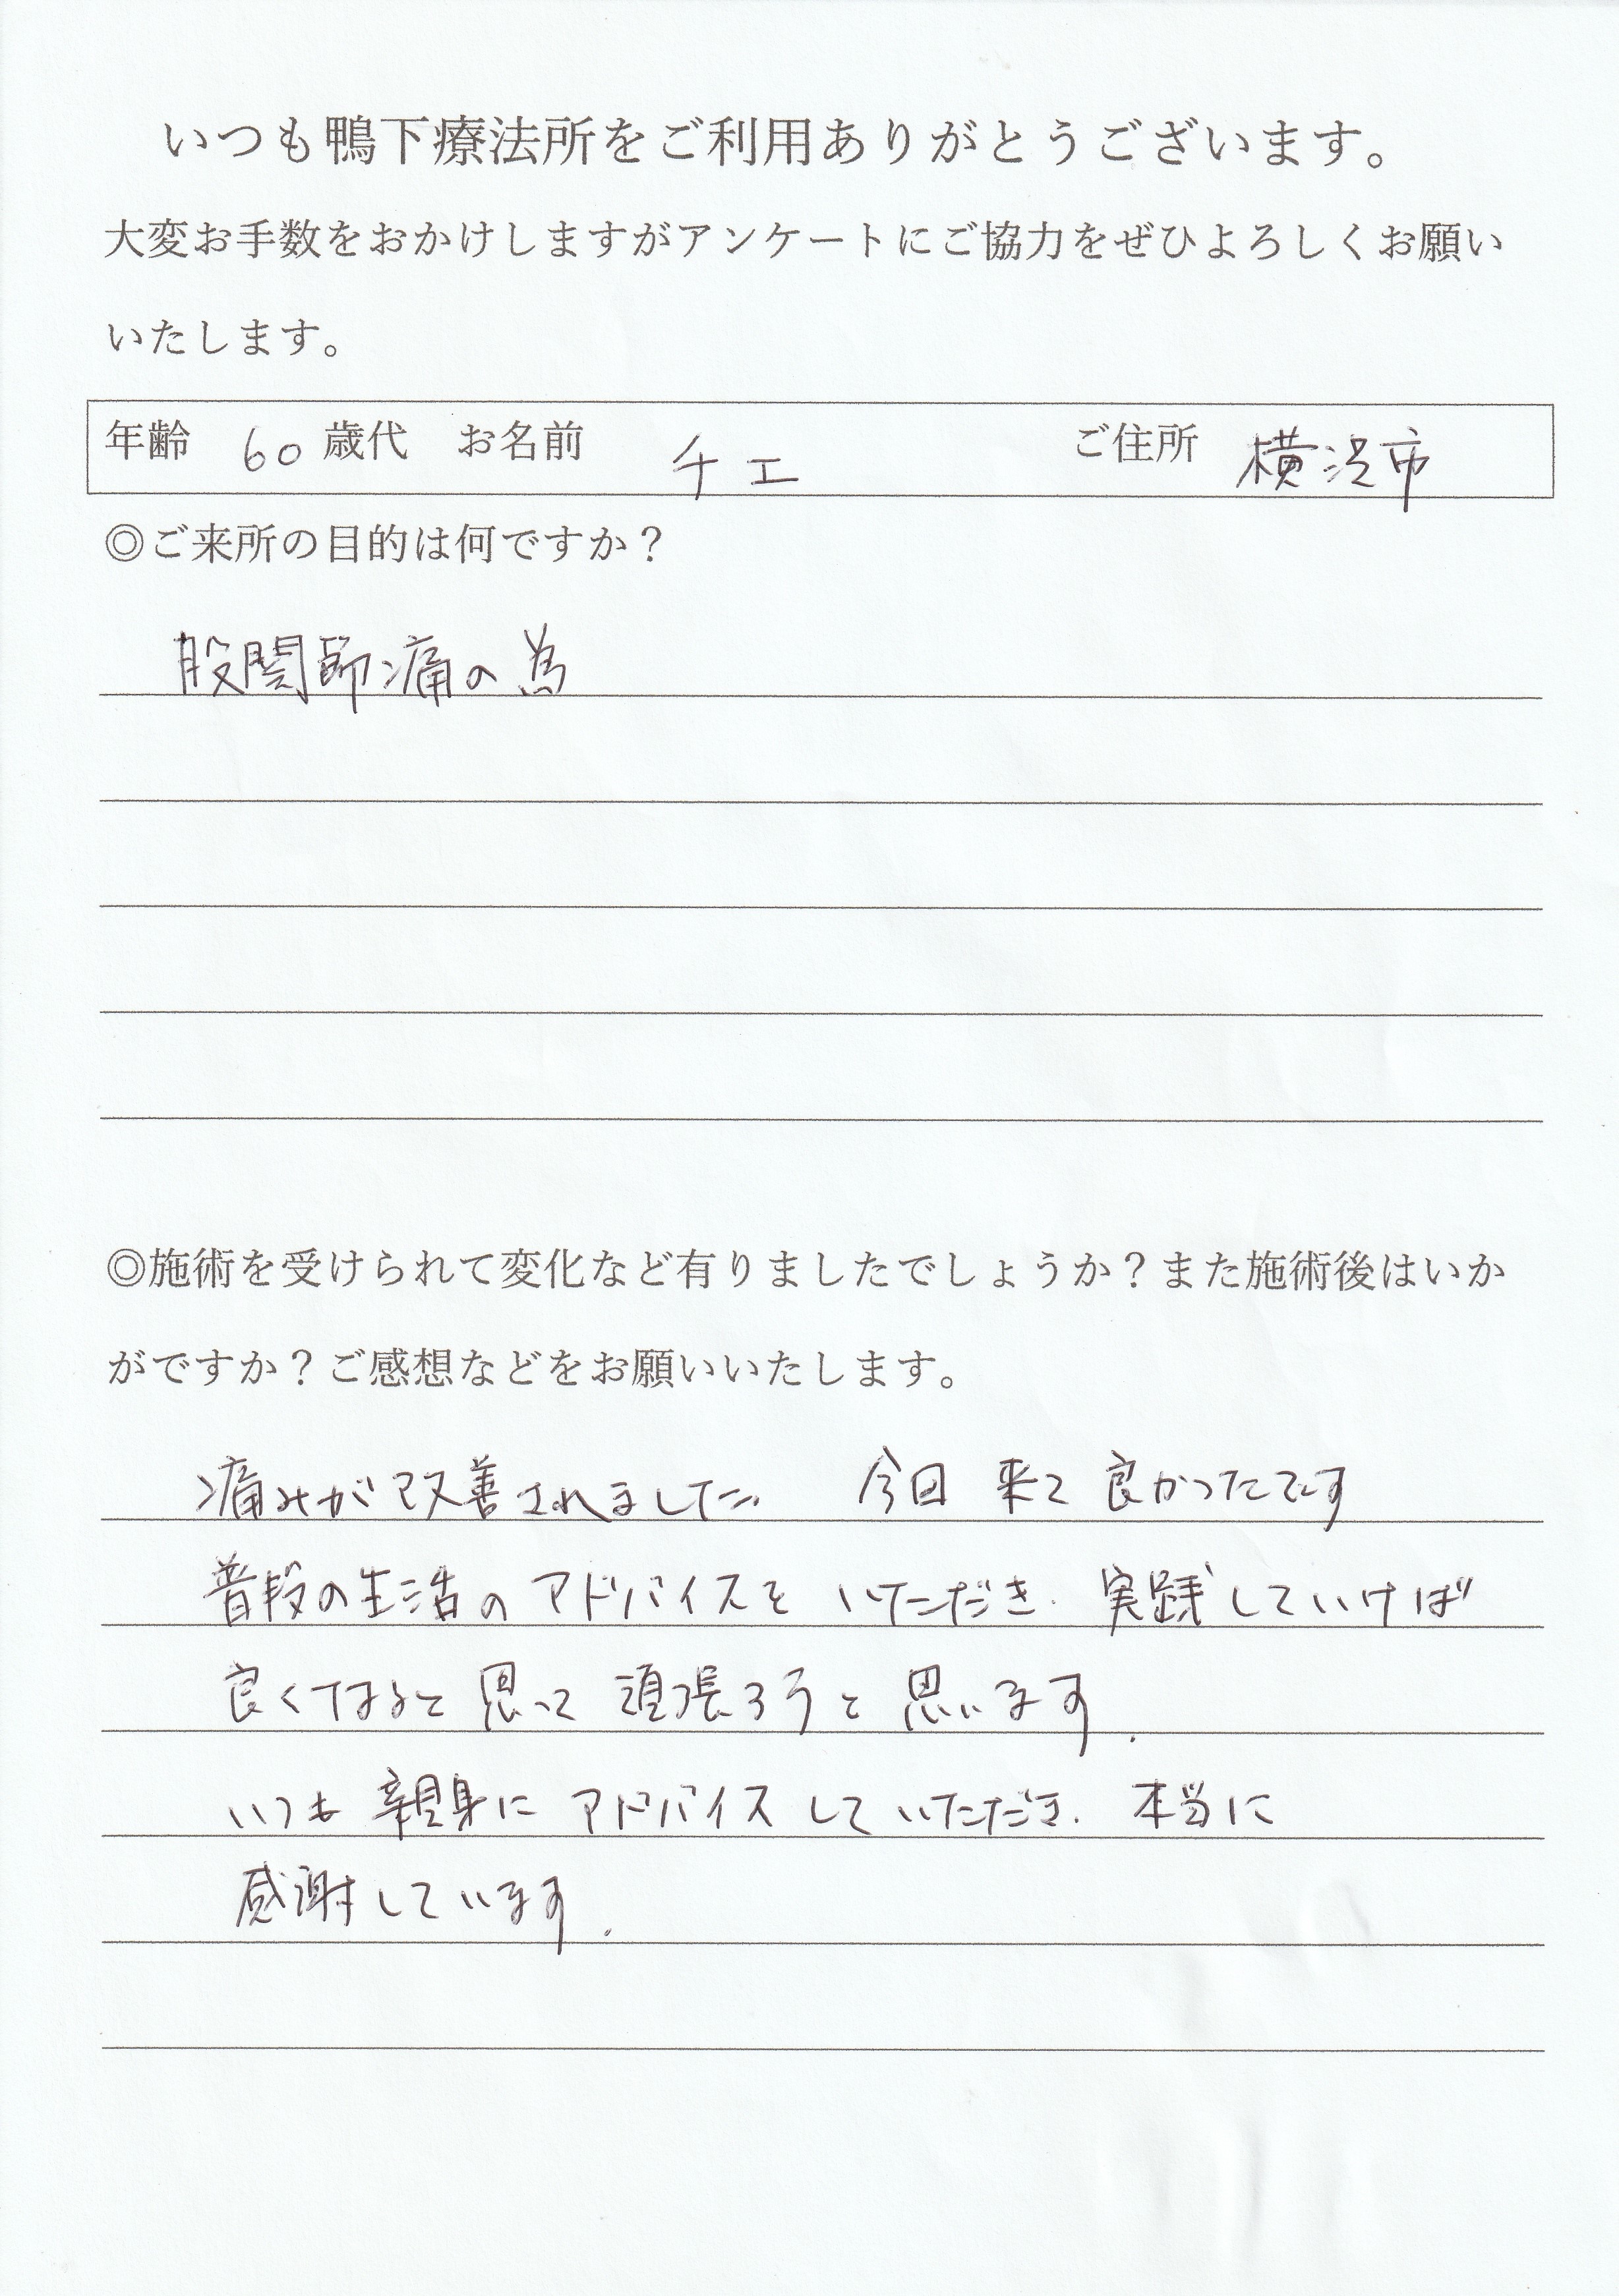 いつも鴨下療法所をご利用ありがとうございます。
大変お手数をおかけしますがアンケートにご協力をぜひよろしくお願い
いたします。
年齢 60 歳代 お名前 チエ ご住所 横浜市
◎ご来所の目的は何ですか？
股関節痛の為
◎施術を受けられて変化など有りましたでしょうか？また施術後はいか
がですか？ご感想などをお願いいたします。
痛みが改善されました。 今回 来て 良かったです
普段の生活の アドバイスを いただき. 実践していけば
良くなると 思って 頑張ろうと 思います.
いつも 親身に アドバイス して いただき. 本当に
感謝しています.